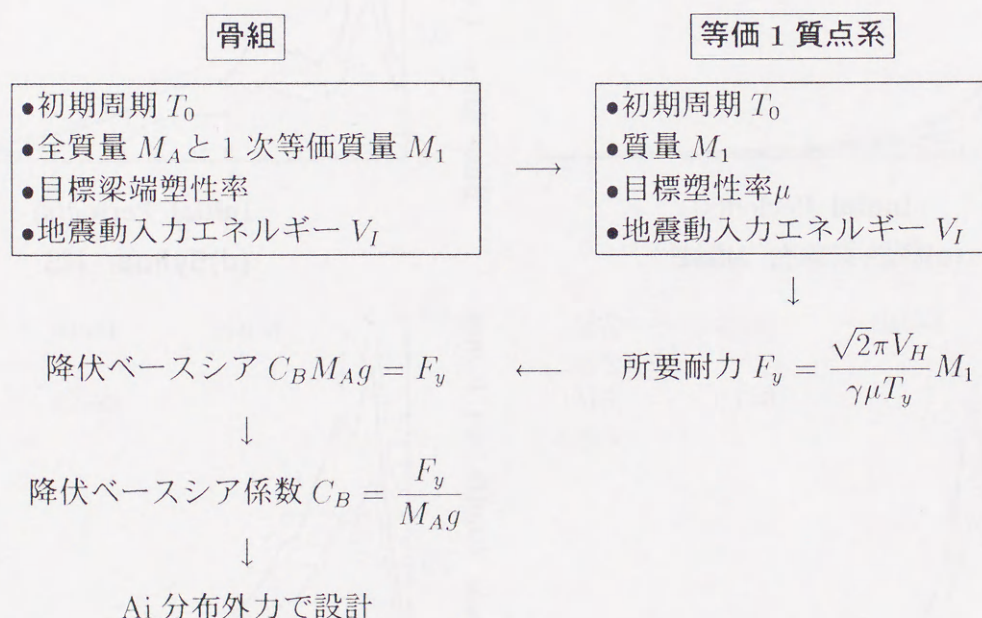 骨組
等価 1 質点系
●初期周期 T_0
●全質量 M_Aと 1 次等価質量 M_1
●目標梁端塑性率
●地震動入力エネルギー V_I
→
●初期周期 T_0
●質量 M_1
●目標塑性率μ
●地震動入力エネルギー V_I
↓
降伏ベースシア C_B M_A g = F_y ← 所要耐力 F_y = \frac{\sqrt{2}πV_H}{γμT_y} M_1
↓
降伏ベースシア係数 C_B = \frac{F_y}{M_A g}
↓
Ai 分布外力で設計